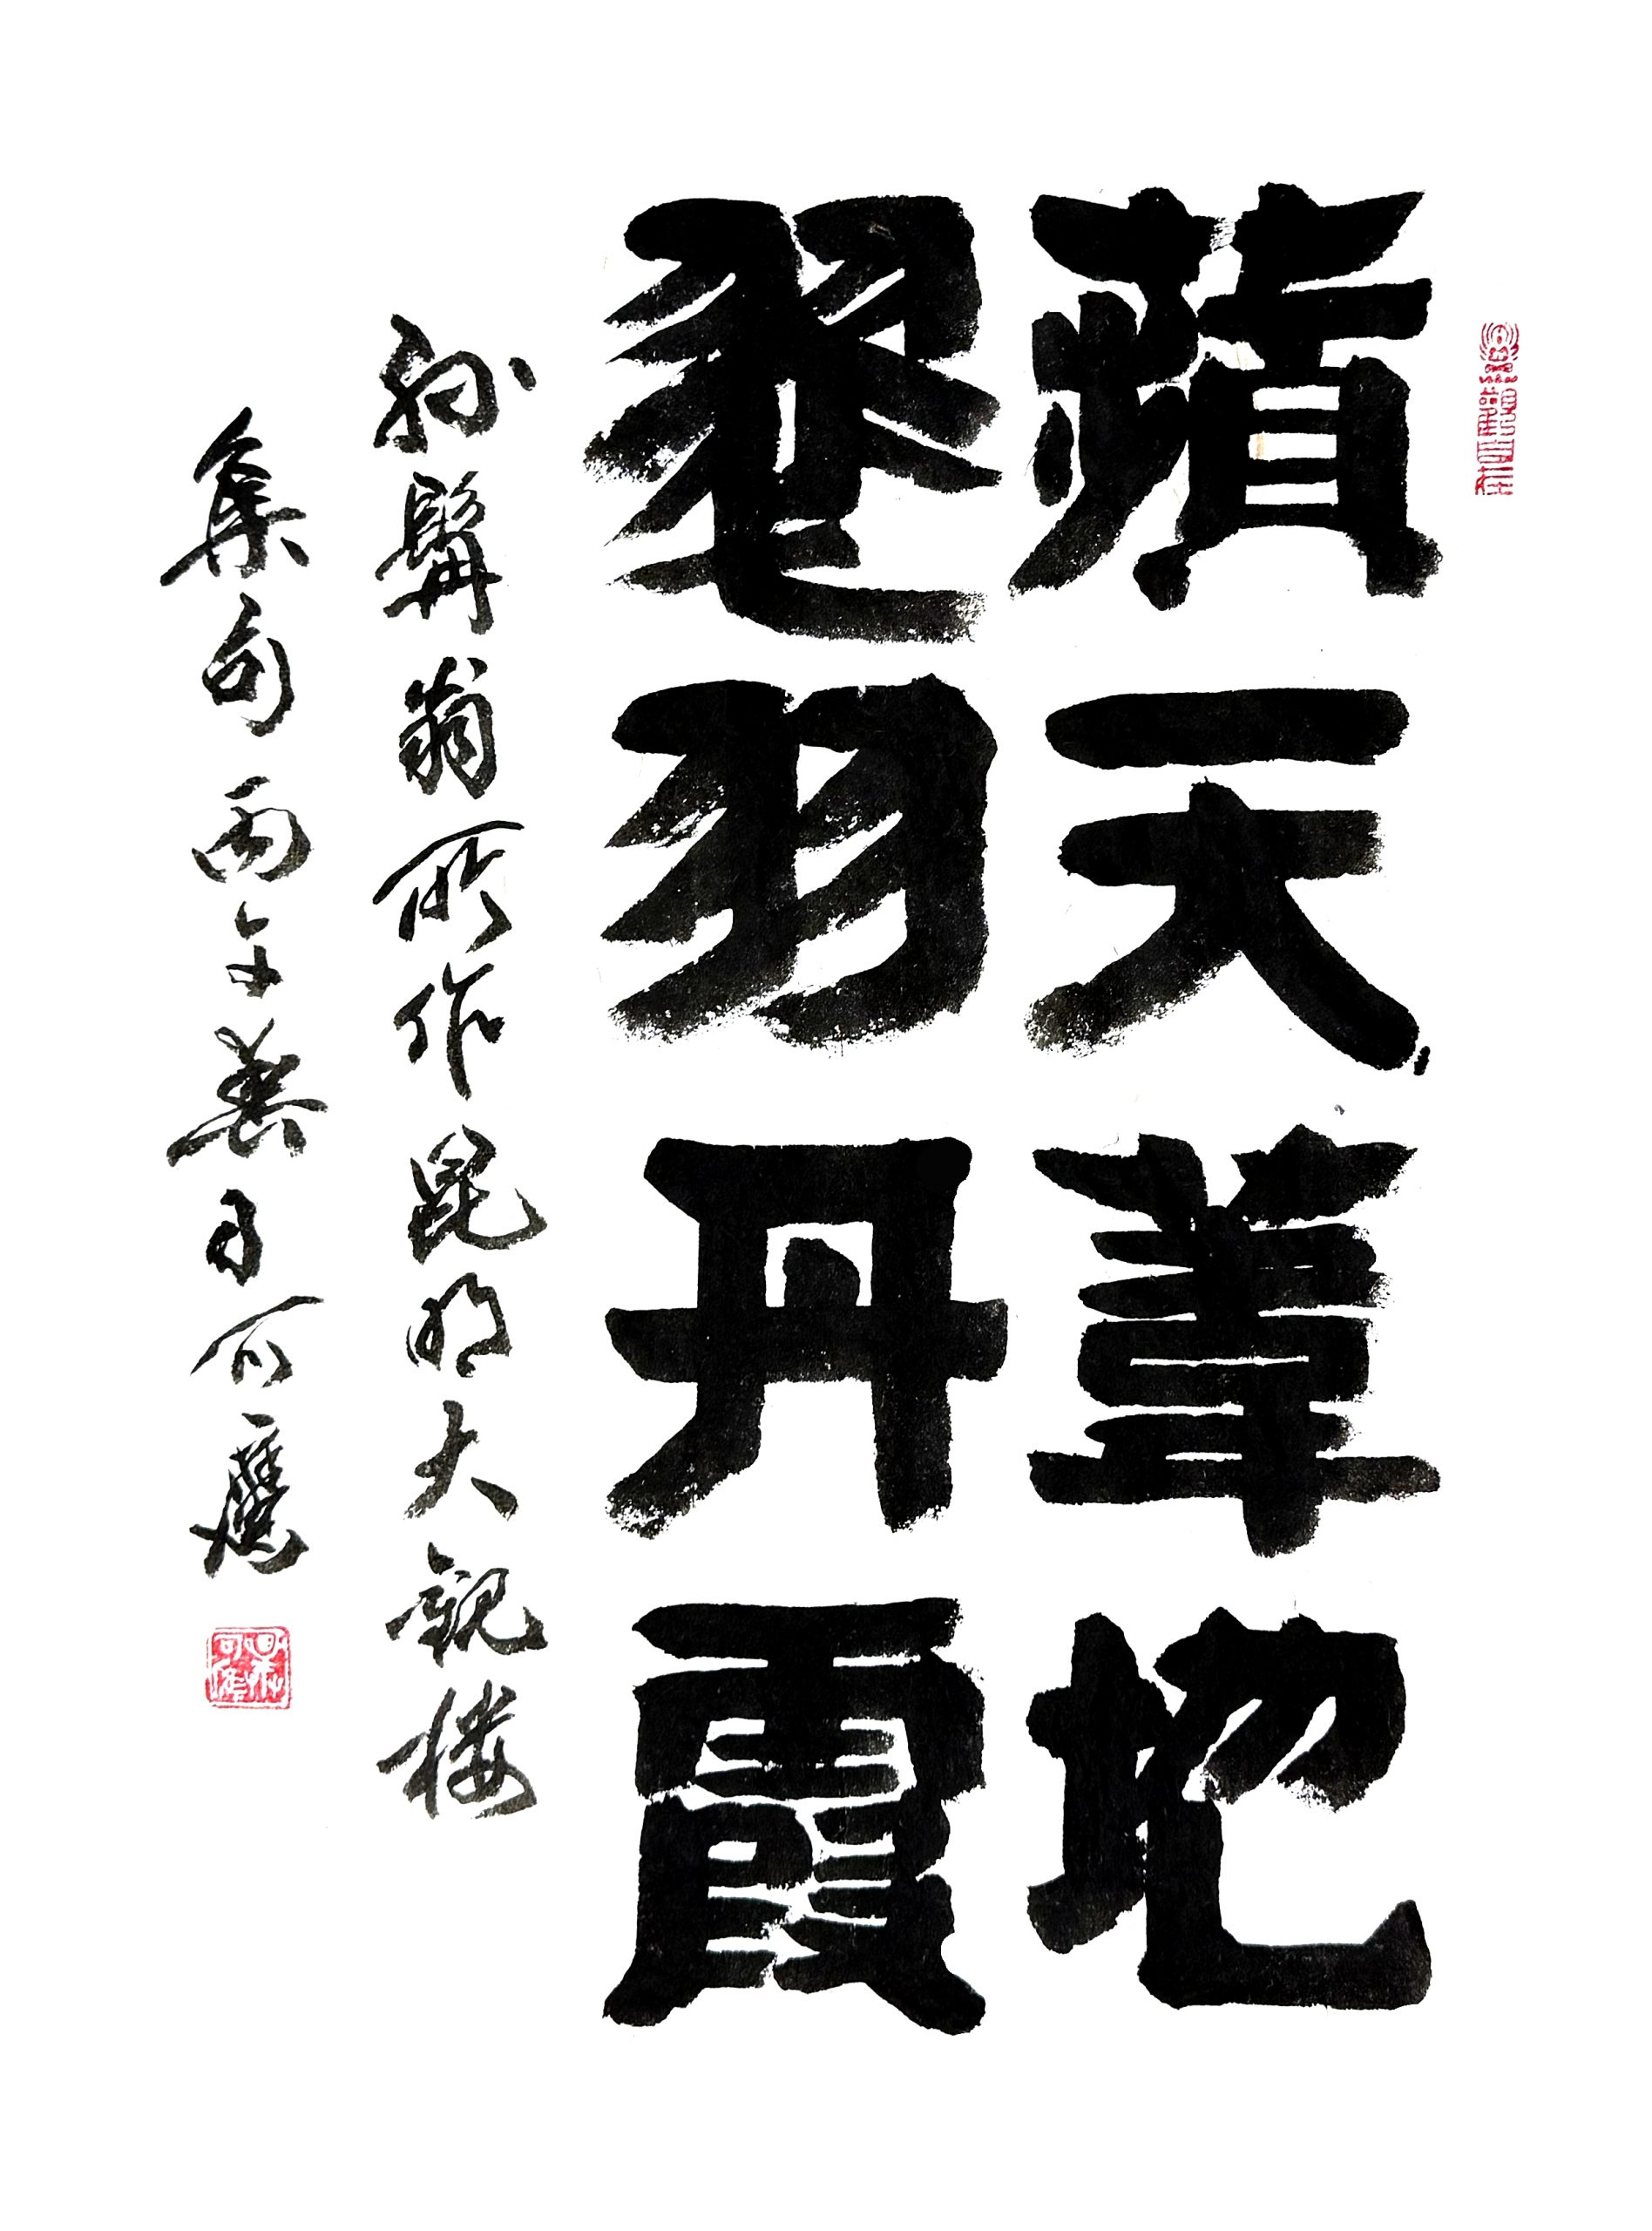 蘋天葦地
翠羽丹霞
孙髯翁所作昆明大观楼
集句丙午冬月可鹰